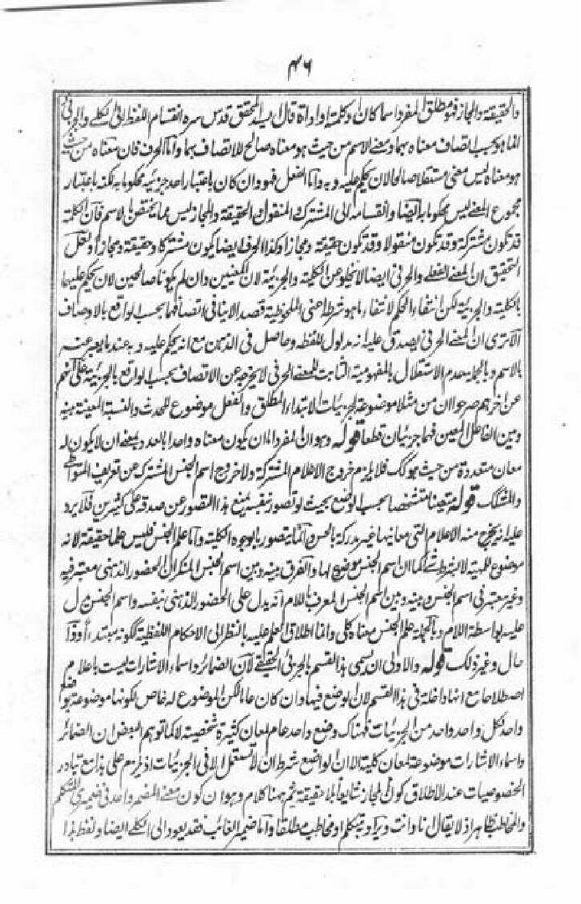 ٤٦
والحقيقة والمجاز فهو مطلق المفرد اسما كان او كلمة او اداة قال السيد المحقق قدس سره انقسام اللفظ الى الكلي والجزئي
انما هو بحسب اتصاف معناه بهما ومعنى الاسم من حيث هو معناه صالح للاتصاف بهما واما الحرف فان معناه من حيث
هو معناه ليس معنى مستقلا صالحا لان يحكم عليه وبه واما الفعل فهو وان كان باعتبار احد جزئيه محكوما به لكنه باعتبار
مجموع المعنى ليس محكوما به ايضا وانقسامه الى المشترك المنقول والحقيقة والمجاز ليس مما يختص بالاسم فان الكلمة
قد تكون مشتركة وقد تكون منقولا وقد تكون حقيقة ومجازا وكذا الحرف ايضا يكون مشتركا وحقيقة ومجازا ولعل
التحقيق ان المعنى الفعلي والحرفي ايضا لا يخلو عن الكلية والجزئية لان كل معنيين وان لم يكونا صالحين لان يحكم عليهما
بالكلية والجزئية لكن انتفاء الحكم لانتفاء ما هو شرطه اعني الملحوظية قصدا لا ينافي اتصافهما بحسب الواقع بالاوصاف
الا ترى ان المعنى الحرفي يصدق عليه انه مدلول للفظه وحاصل في الذهن مع انه يحكم عليه وبه عند ما يعبر عنه
بالاسم وبالجملة عدم الاستقلال بالمفهومية الثابت للمعنى الحرفي لا يخرجه عن الاتصاف بحسب الواقع بالجزئية على انهم
عن آخرهم صرحوا ان من مثلا موضوعة لجزئيات الابتداء المطلق والفعل موضوع للحدث والنسبة المعينة بينه
وبين الفاعل المعين فهما جزئيان قطعا قوله وهو الى المفرد اما ان يكون معناه واحدا بالعدد بمعنى ان لا يكون له
معان متعددة من حيث هو كذلك فلا يلزم خروج الاعلام المشتركة ولا خروج اسم الجنس المشترك عن تعريف المتواطي
والمشكك قوله متعينا متشخصا بحسب الوضع بحيث لو تصور نفسه يمنع هذا التصور عن صدقه على كثيرين فلا يرد
عليه انه يخرج منه الاعلام التي معانيها غير مدركة بالحس انما يتصور بالوجوه الكلية واما علم الجنس فليس علما حقيقة لانه
موضوع للمهية لا بشرط شئ كما ان اسم الجنس موضوع لها والفرق بينه وبين اسم الجنس المنكر ان الحضور الذهني معتبر فيه
وغير معتبر في اسم الجنس وبينه وبين اسم الجنس المعرف باللام انه يدل على الحضور الذهني بنفسه واسم الجنس يدل
عليه بواسطة اللام وبالجملة علم الجنس معناه كلي وانما اطلاق العلم عليه بالنظر الى الاحكام اللفظية ككونه مبتدأ او ذا
حال وغير ذلك قوله والاولى ان يسمى هذا القسم بالجزئي الحقيقي لان الضمائر واسماء الاشارات ليست باعلام
اصطلاحا مع انها داخلة في هذا القسم لان الوضع فيها وان كان عاما لكن الموضوع له خاص لكونها موضوعة بوضع
واحد لكل واحد واحد من الجزئيات فهناك وضع واحد عام لمعان كثيرة شخصية لا كما توهم البعض ان الضمائر
واسماء الاشارات موضوعة لمعان كلية الا ان الواضع شرط ان لا تستعمل الا في الجزئيات اذ يلزم على هذا مع تبادر
الخصوصيات عند الاطلاق كون المجاز شايعا بلا حقيقة ثم ههنا كلام وهو ان كون معنى المضمر واحدا في ضميري المتكلم
والمخاطب ظاهر اذ لا يقال انا وانت ويراد به متكلم او مخاطب مطلقا واما ضمير الغائب فقد يعود الى الكلي ايضا ولفظ هذا